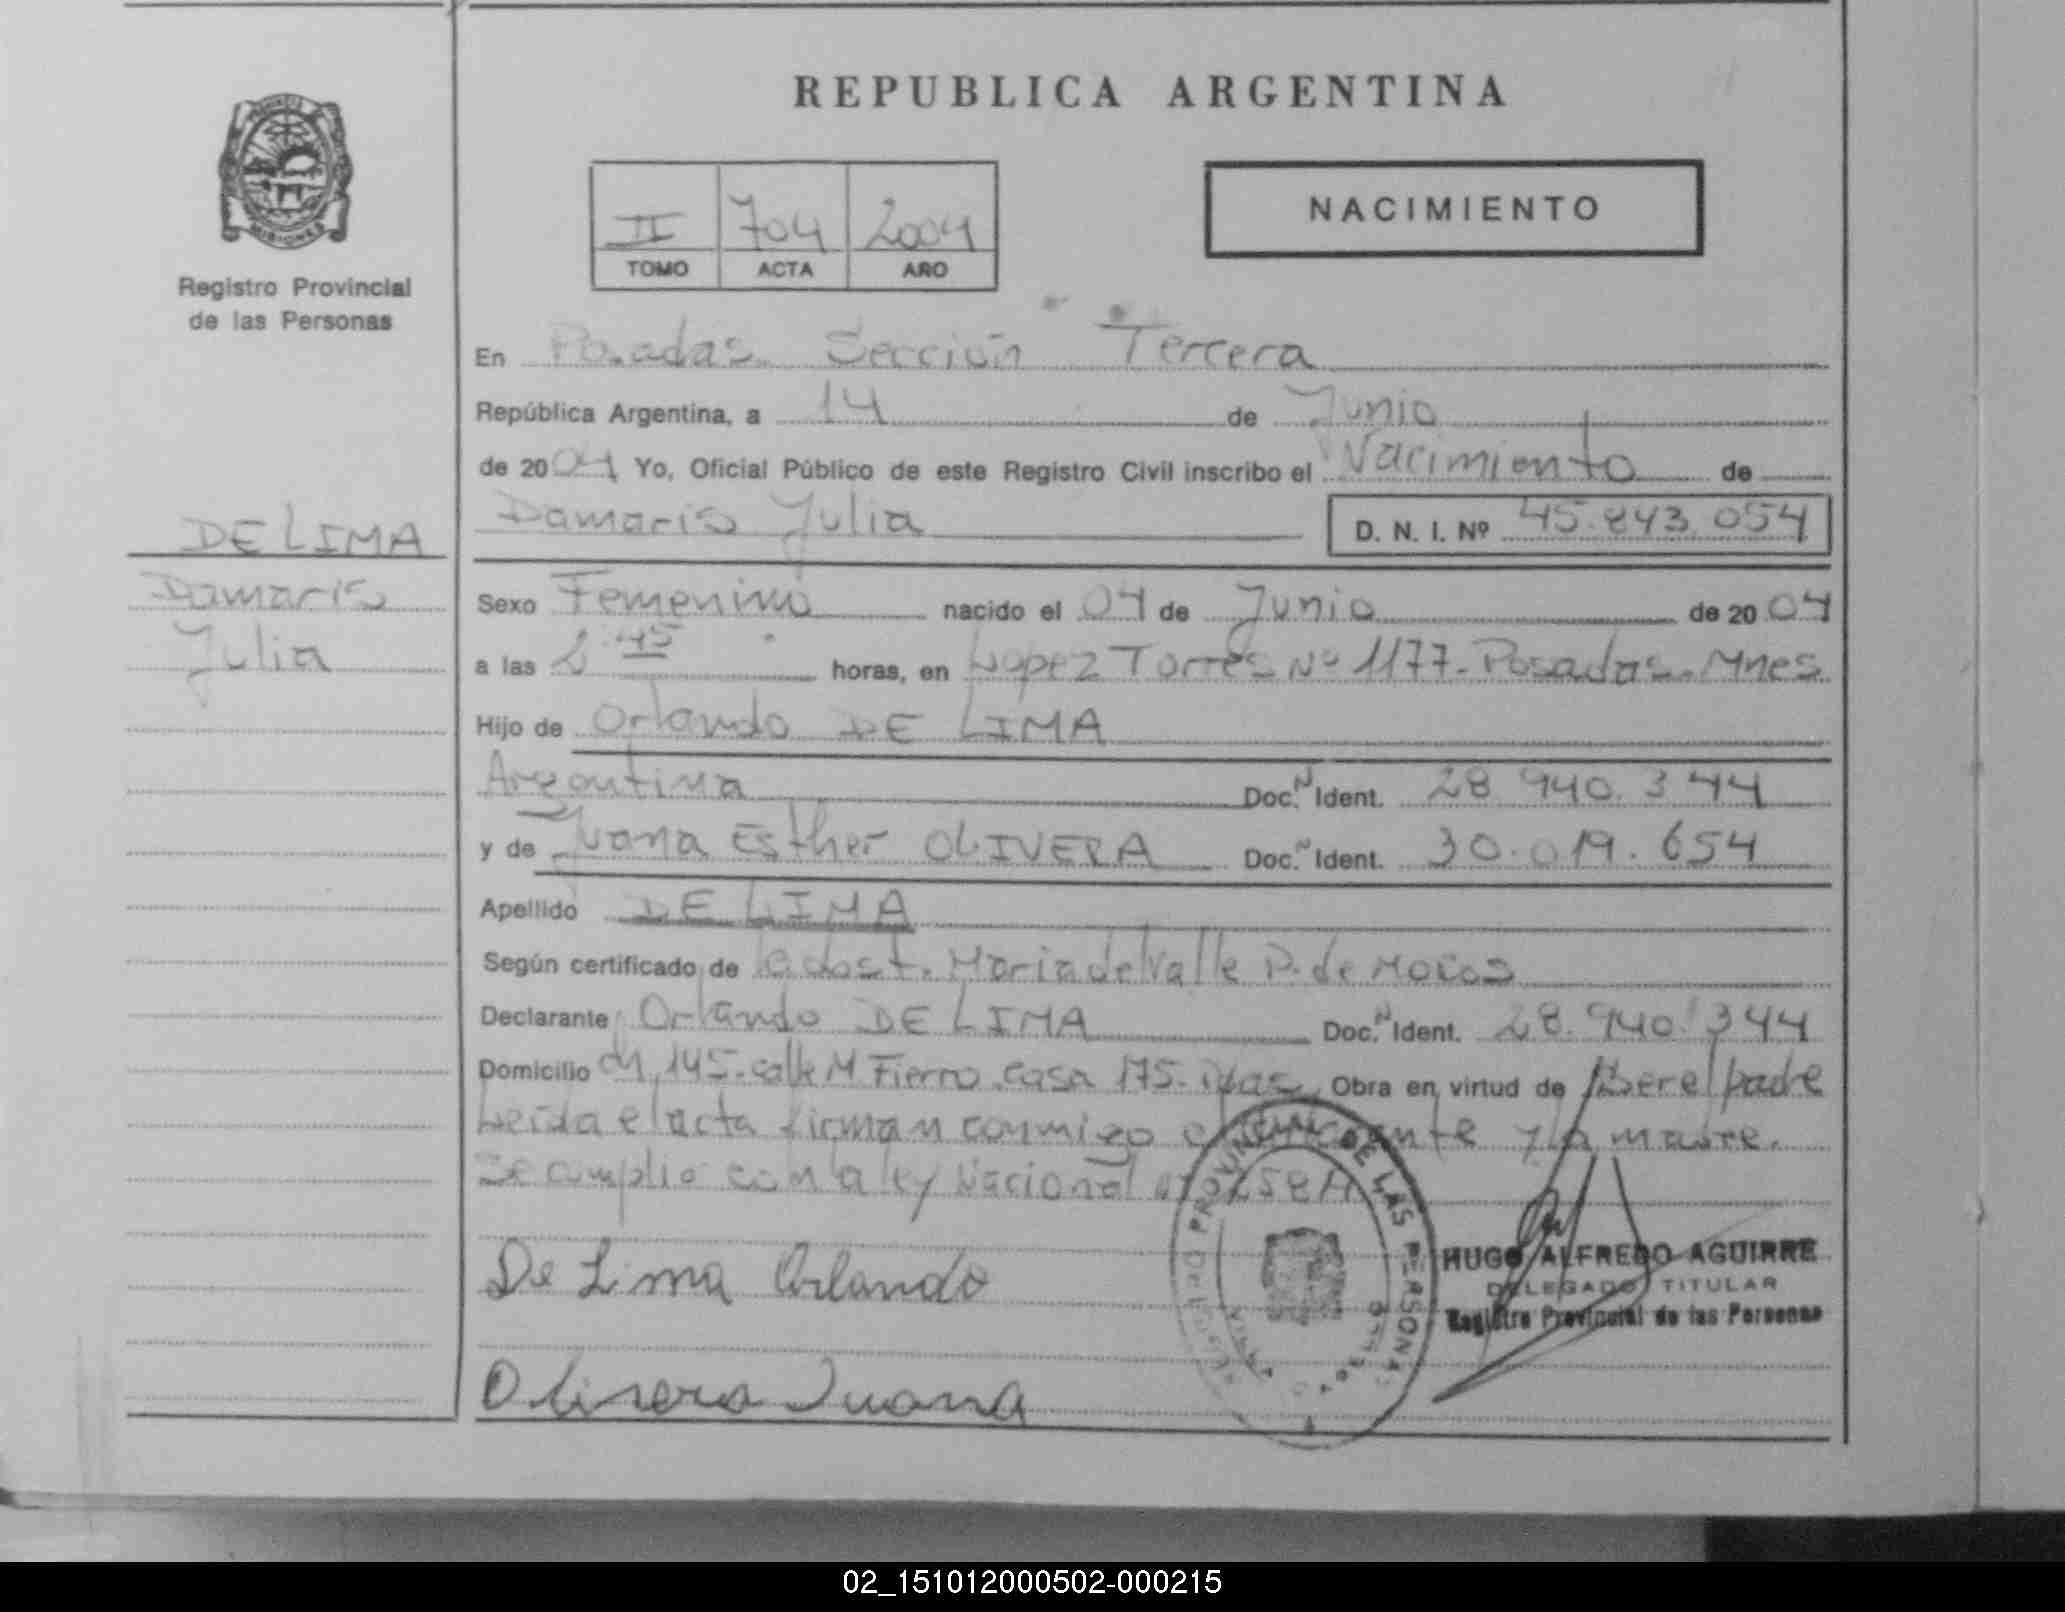 REPUBLICA ARGENTINA
MISIONES
Registro Provincial
de las Personas
II 704 2004
TOMO ACTA AÑO
NACIMIENTO
En Posadas Sección Tercera
República Argentina, a 14 de Junio
de 2004 Yo, Oficial Público de este Registro Civil inscribo el Nacimiento de
Damaris Julia D. N. I. Nº 45.843.054
DE LIMA
Damaris
Julia
Sexo Femenino nacido el 04 de Junio de 2004
a las 2.45 horas, en Lopez Torres Nº 1177. Posadas. Mnes
Hijo de Orlando DE LIMA
Argentina Doc. N Ident. 28.940.344
y de Juana Esther OLIVERA Doc. N Ident. 30.019.654
Apellido DE LIMA
Según certificado de la obst. Maria del Valle P. de
Declarante Orlando DE LIMA Doc. N Ident. 28.940.344
Domicilio ch 145. calle M Fierro casa 175. Pdas Obra en virtud de ser el padre
Leida el acta firman conmigo el y la madre.
Se cumplio con la ley Nacional
De Lima Orlando
HUGO ALFREDO AGUIRRE
DELEGADO TITULAR
Registro Provincial de las Personas
Olivera Juana
PROVINCIAL DE LAS PERSONAS
02_151012000502-000215